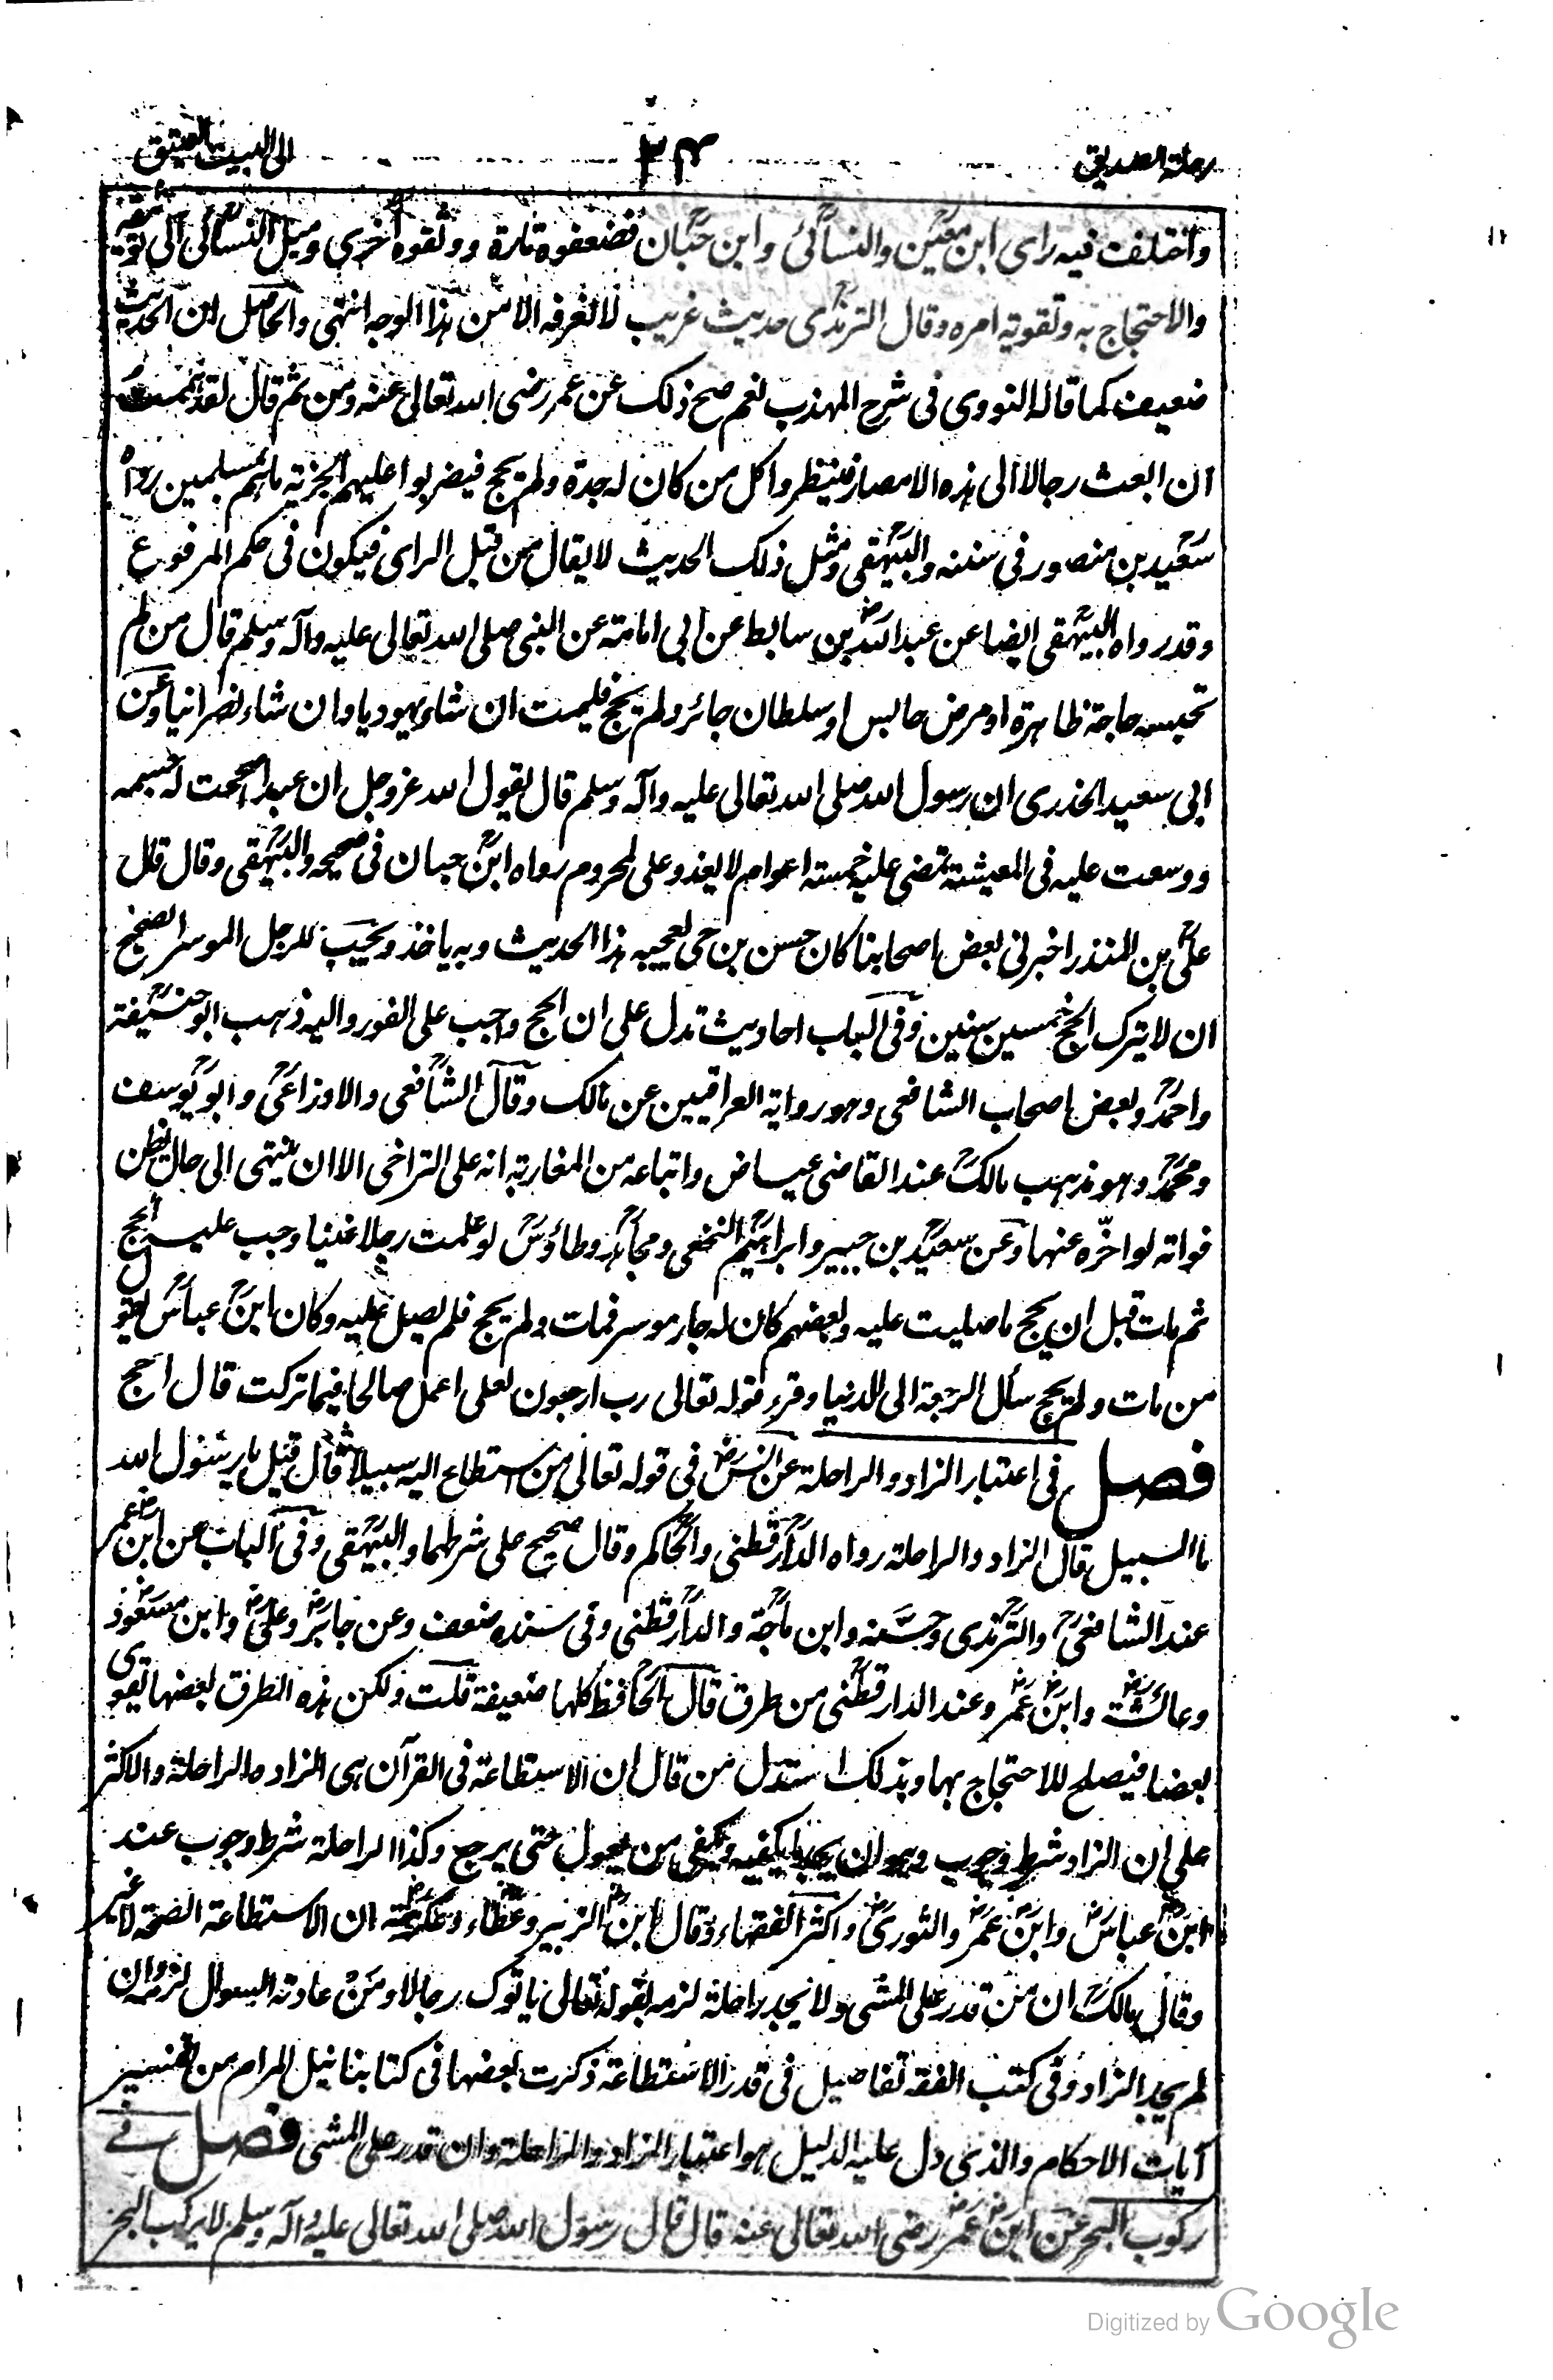 رحلة الصديق
٢٤
الى البيت العتيق
واختلفت فيه راى ابن معين والنسائى وابن حبان فضعفوه تارة ووثقوه اخرى وميل النسائى الى توثيقه
والاحتجاج به وتقوية امره وقال الترمذى حديث غريب لا نعرفه الا من هذا الوجه انتهى والحاصل ان الحديث
ضعيف كما قاله النووى فى شرح المهذب نعم صح ذلك عن عمر رضى الله تعالى عنه ومن ثم قال لقد هممت
ان ابعث رجالا الى هذه الامصار فينظروا كل من كان له جدة ولم يحج فيضربوا عليهم الجزية ما هم بمسلمين رواه
سعيد بن منصور فى سننه والبيهقى ومثل ذلك الحديث لا يقال من قبل الراى فيكون فى حكم المرفوع
وقد رواه البيهقى ايضا عن عبد الله بن سابط عن ابى امامة عن النبى صلى الله تعالى عليه وآله وسلم قال من لم
تحبسه حاجة ظاهرة او مرض حابس او سلطان جائر ولم يحج فليمت ان شاء يهوديا وان شاء نصرانيا وعن
ابى سعيد الخدرى ان رسول الله صلى الله تعالى عليه وآله وسلم قال يقول الله عز وجل ان عبدا صححت له جسمه
ووسعت عليه فى المعيشة تمضى عليه خمسة اعوام لا يغدو على لمحروم رواه ابن حبان فى صحيحه والبيهقى وقال قال
على بن المنذر اخبرنى بعض اصحابنا كان حسن بن حى يعجبه هذا الحديث وبه ياخذ ويحب للرجل الموسر الصحيح
ان لا يترك الحج خمسين سنين وفى الباب احاديث تدل على ان الحج واجب على الفور واليه ذهب ابو حنيفة
واحمد وبعض اصحاب الشافعى وهو رواية العراقيين عن مالك وقال الشافعى والاوزاعى وابو يوسف
ومحمد وهو مذهب مالك عند القاضى عياض واتباعه من المغاربة انه على التراخى الا ان ينتهى الى حال يظن
فواته لو اخّره عنها وعن سعيد بن جبير وابراهيم النخعى ومجاهد وطاؤس لو علمت رجلا غنيا وجب عليه الحج
ثم مات قبل ان يحج ما صليت عليه وبعضهم كان له جار موسر فمات ولم يحج فلم يصل عليه وكان ابن عباس يقول
من مات ولم يحج سأل الرجعة الى الدنيا وقرء قوله تعالى رب ارجعون لعلى اعمل صالحا فيما تركت قال احج
فصل فى اعتبار الزاد والراحلة عن انس فى قوله تعالى من استطاع اليه سبيلا قال قيل يا رسول الله
ما السبيل قال الزاد والراحلة رواه الدارقطنى والحاكم وقال صحيح على شرطهما والبيهقى وفى الباب عن ابن عمر
عند الشافعى والترمذى وحسّنه وابن ماجة والدارقطنى وفى سنده ضعف وعن جابر وعلى وابن مسعود
وعائشة وابن عمر وعند الدارقطنى من طرق قال الحافظ كلها ضعيفة قلت ولكن هذه الطرق بعضها تقوى
بعضا فيصلح للاحتجاج بها وبذلك استدل من قال ان الاستطاعة فى القرآن هى الزاد والراحلة والاكثر
على ان الزاد شرط وجوب وهو ان يجد ما يكفيه ويكفى من يعول حتى يرجع وكذا الراحلة شرط وجوب عند
ابن عباس وابن عمر والثورى واكثر الفقهاء وقال ابن الزبير وعطاء وعكرمة ان الاستطاعة الصحة لا غير
وقال مالك ان من قدر على المشى ولا يجد راحلة لزمه لقوله تعالى ياتوك رجالا ومن عادته السوال لزمه وان
لم يجد الزاد وفى كتب الفقه تفاصيل فى قدر الاستطاعة ذكرت بعضها فى كتابنا نيل المرام من تفسير
آيات الاحكام والذى دل عليه الدليل هو اعتبار الزاد والراحلة وان قدر على المشى فصل فى
ركوب البحر عن ابن عمر رضى الله تعالى عنه قال قال رسول الله صلى الله تعالى عليه وآله وسلم لا يركب البحر
Digitized by Google